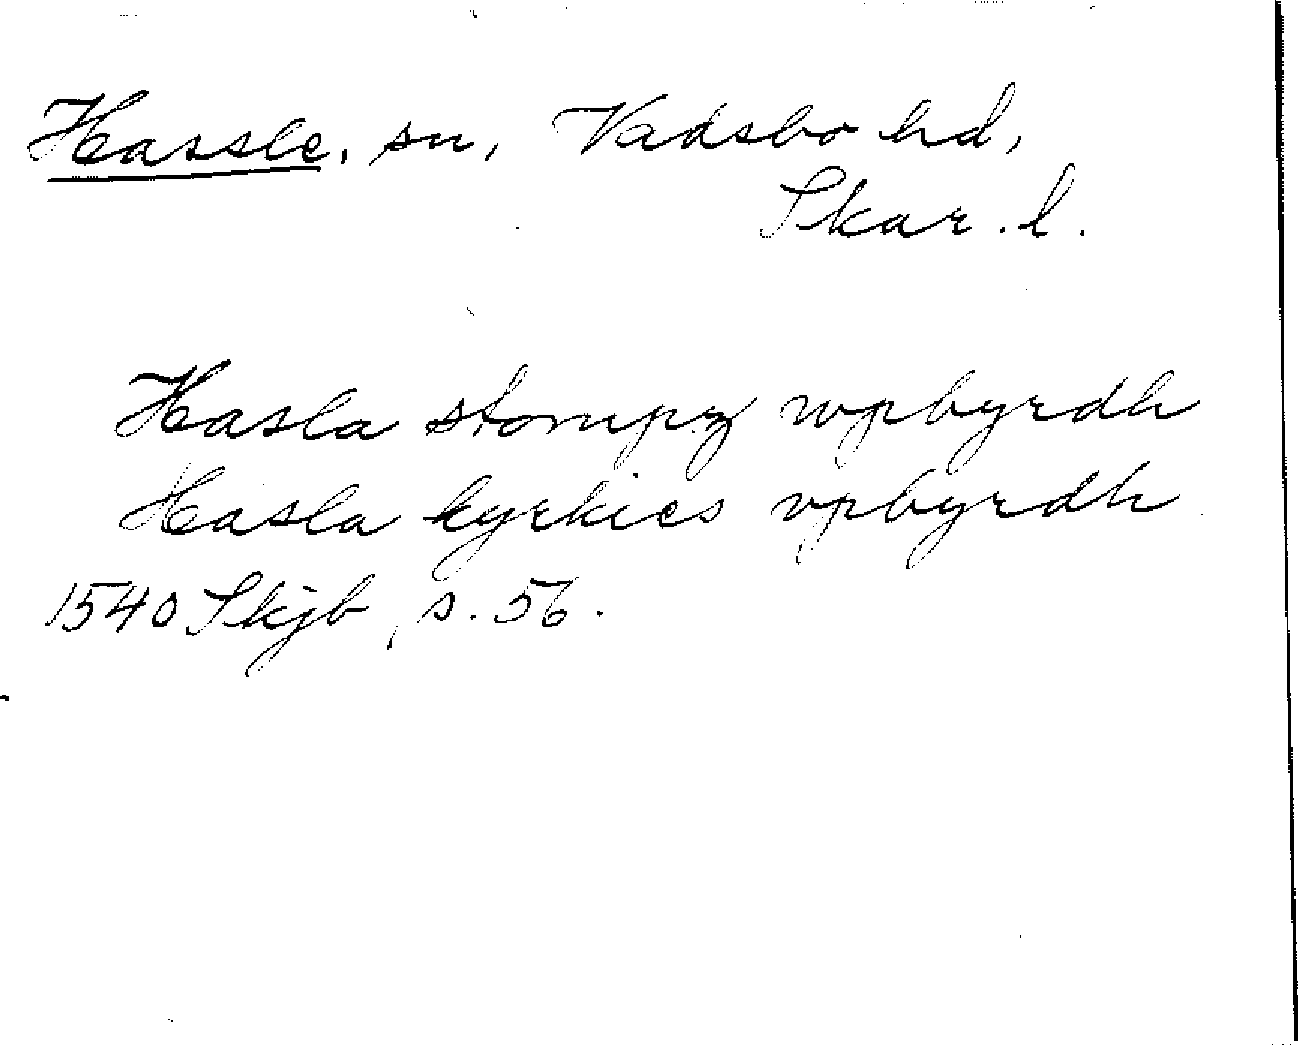 Hassle, sn, Vadsbo hd,
Skar. l.
Hasla stompz wpbyrdh
Hasla kyrkies vpbyrdh
1540 Skjb, s. 56.